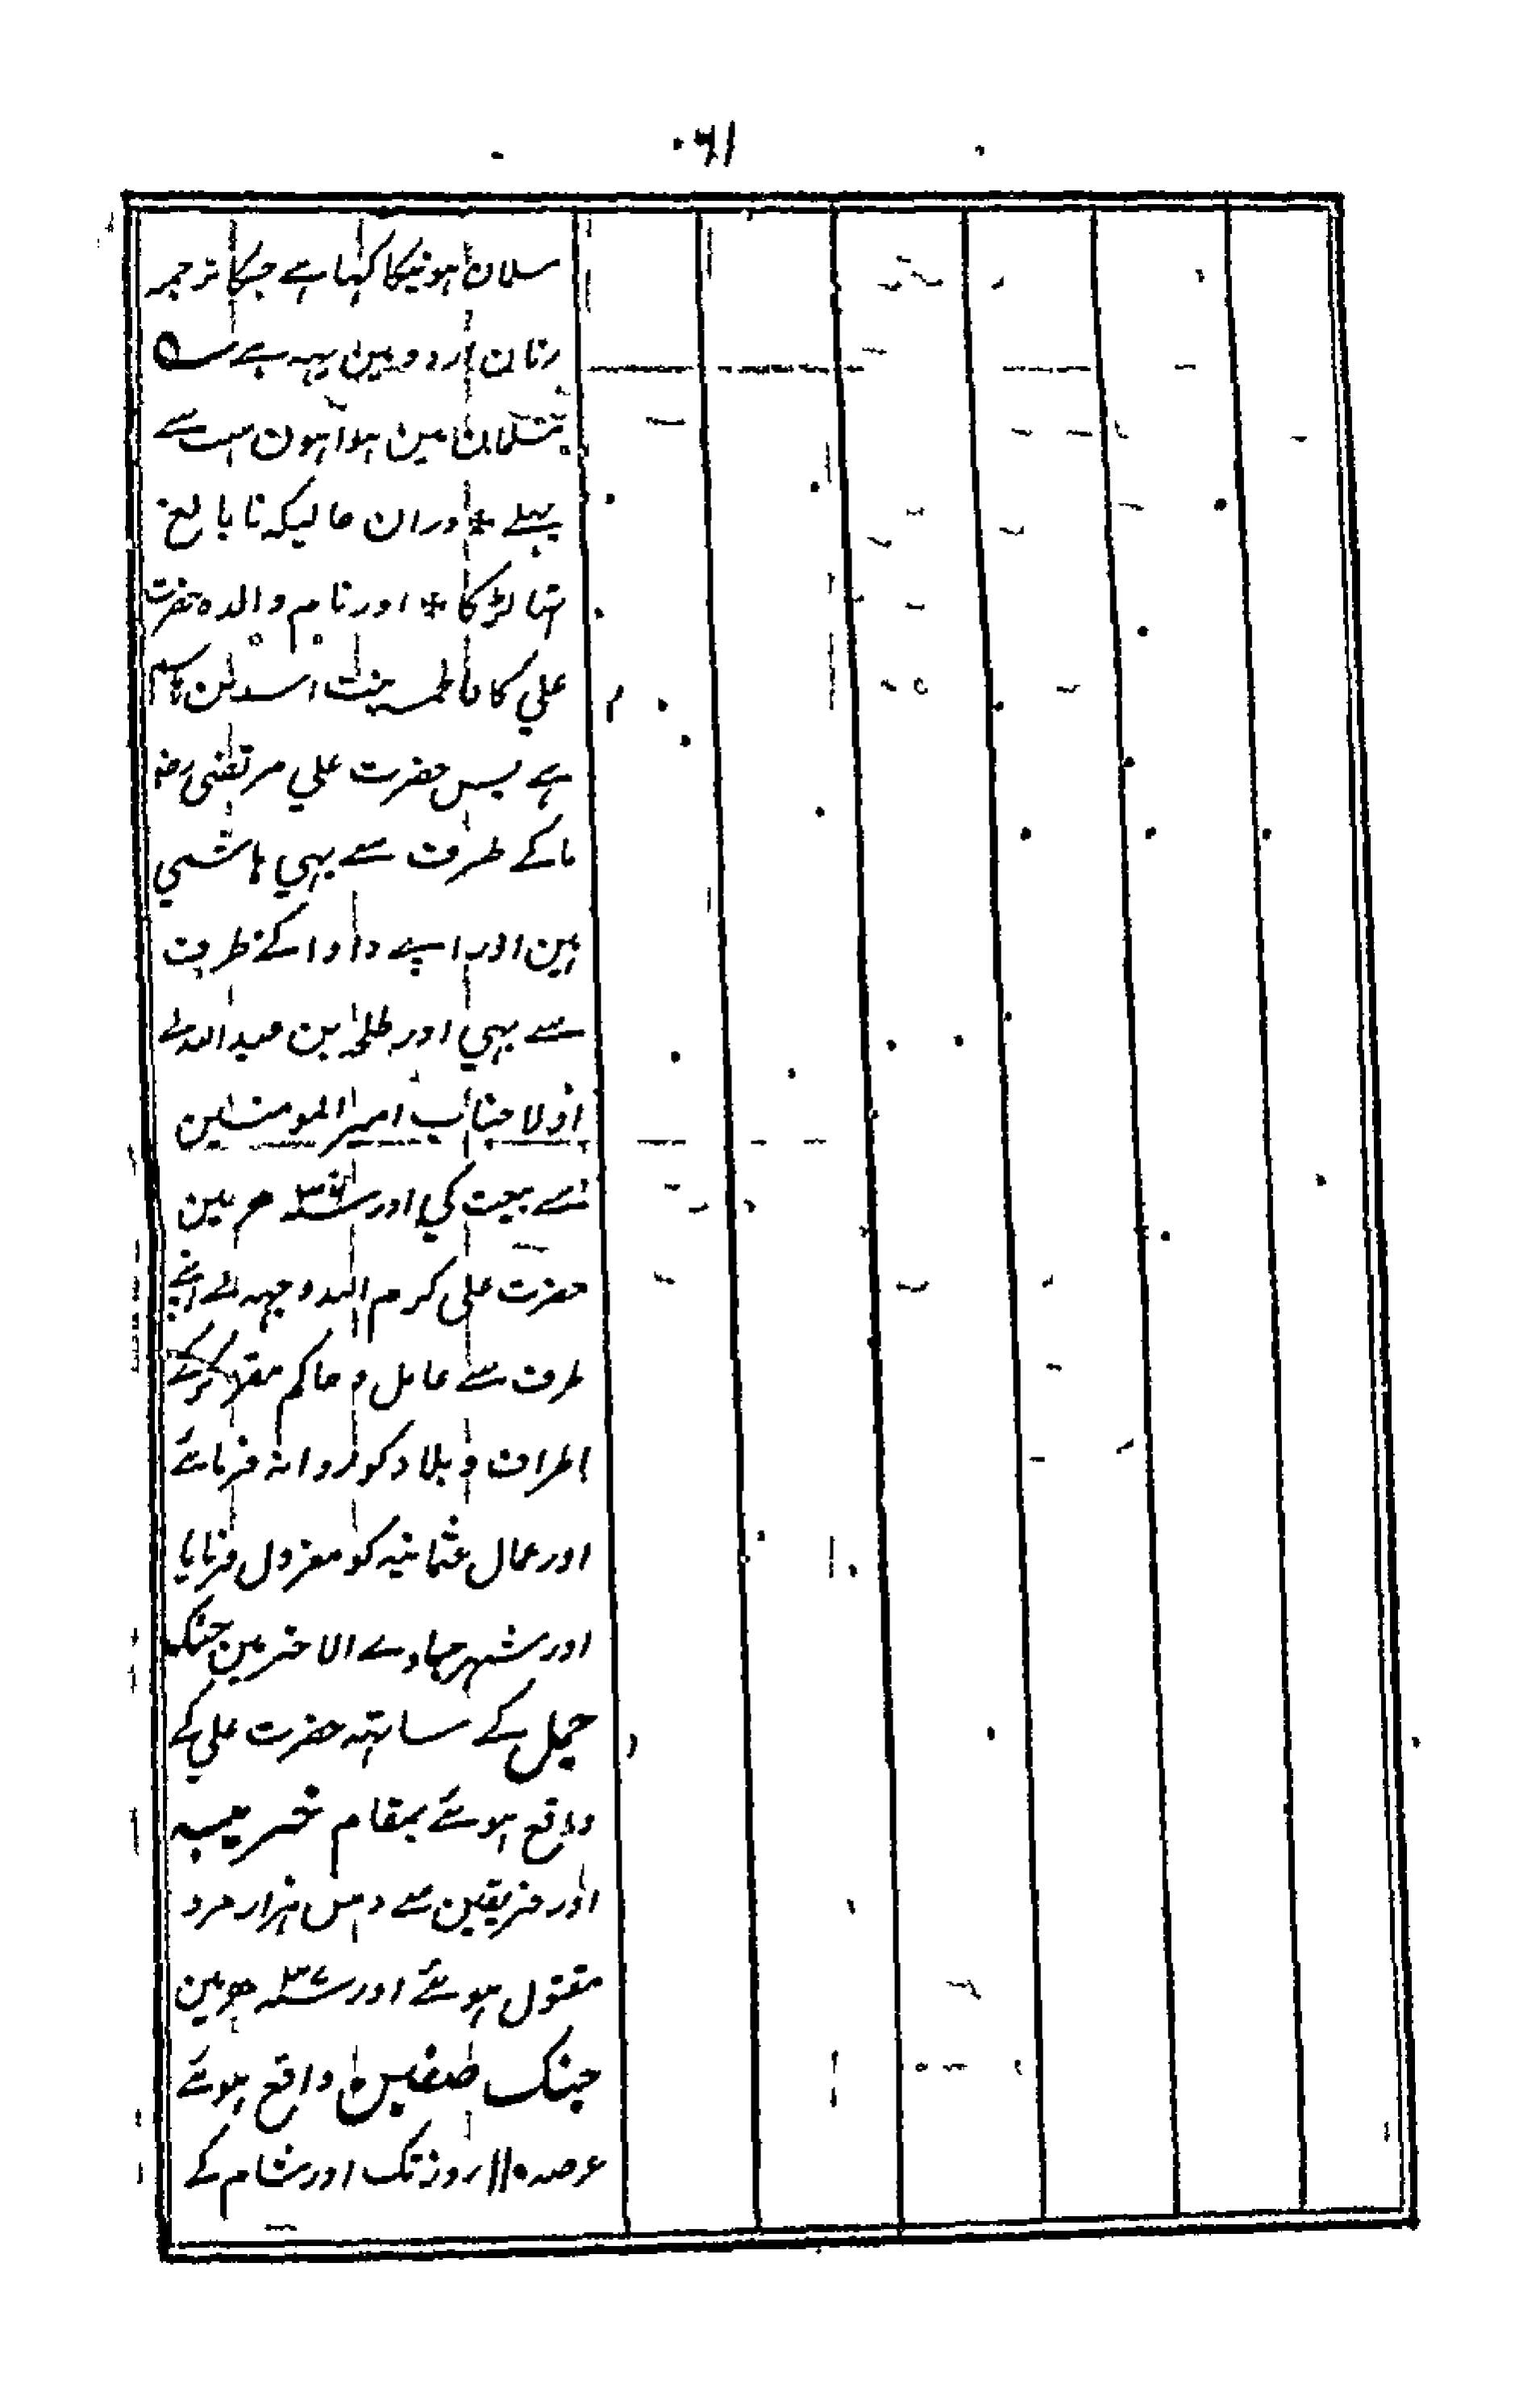 ۶۱
مسلمان ہونیکا کہا ہے جسکا ترجمہ
زبان اردو مین یہہ ہے
مسلمان مین ہوا ہون سب سے
پہلے * دران حالیکہ نابالغ
تہا لڑکا * اور نام والدہ حضرت
علي کا فاطمہ بنت اسد بن ہاشم
ہے پس حضرت علي مرتضی رضہ
ما کے طرف سے بہي ہاشمي
ہین اور اپنے دادا کے طرف
سے بہي اور طلحہ بن عبداللہ نے
اولا جناب امیر المومنین
سے بیعت کي اور سنہ ۳۶ ھ مین
حضرت علی کرم اللہ وجہہ نے اپنے
طرف سے عامل و حاکم مقرر کرکے
اطراف و بلاد کو روانہ فرمائے
اور عمال عثمانیہ کو معزول فرمایا
اور شہر جمادے الاخر مین جنک
جمل کے ساتہہ حضرت علي کے
واقع ہوئے بمقام خریبہ
اور فریقین سے دس ہزار مرد
مقتول ہوئے اور سنہ ۳۷ ھ مین
جنک صفین واقع ہوئے
عرصہ ۱۱۰ روز تک اور شام کے